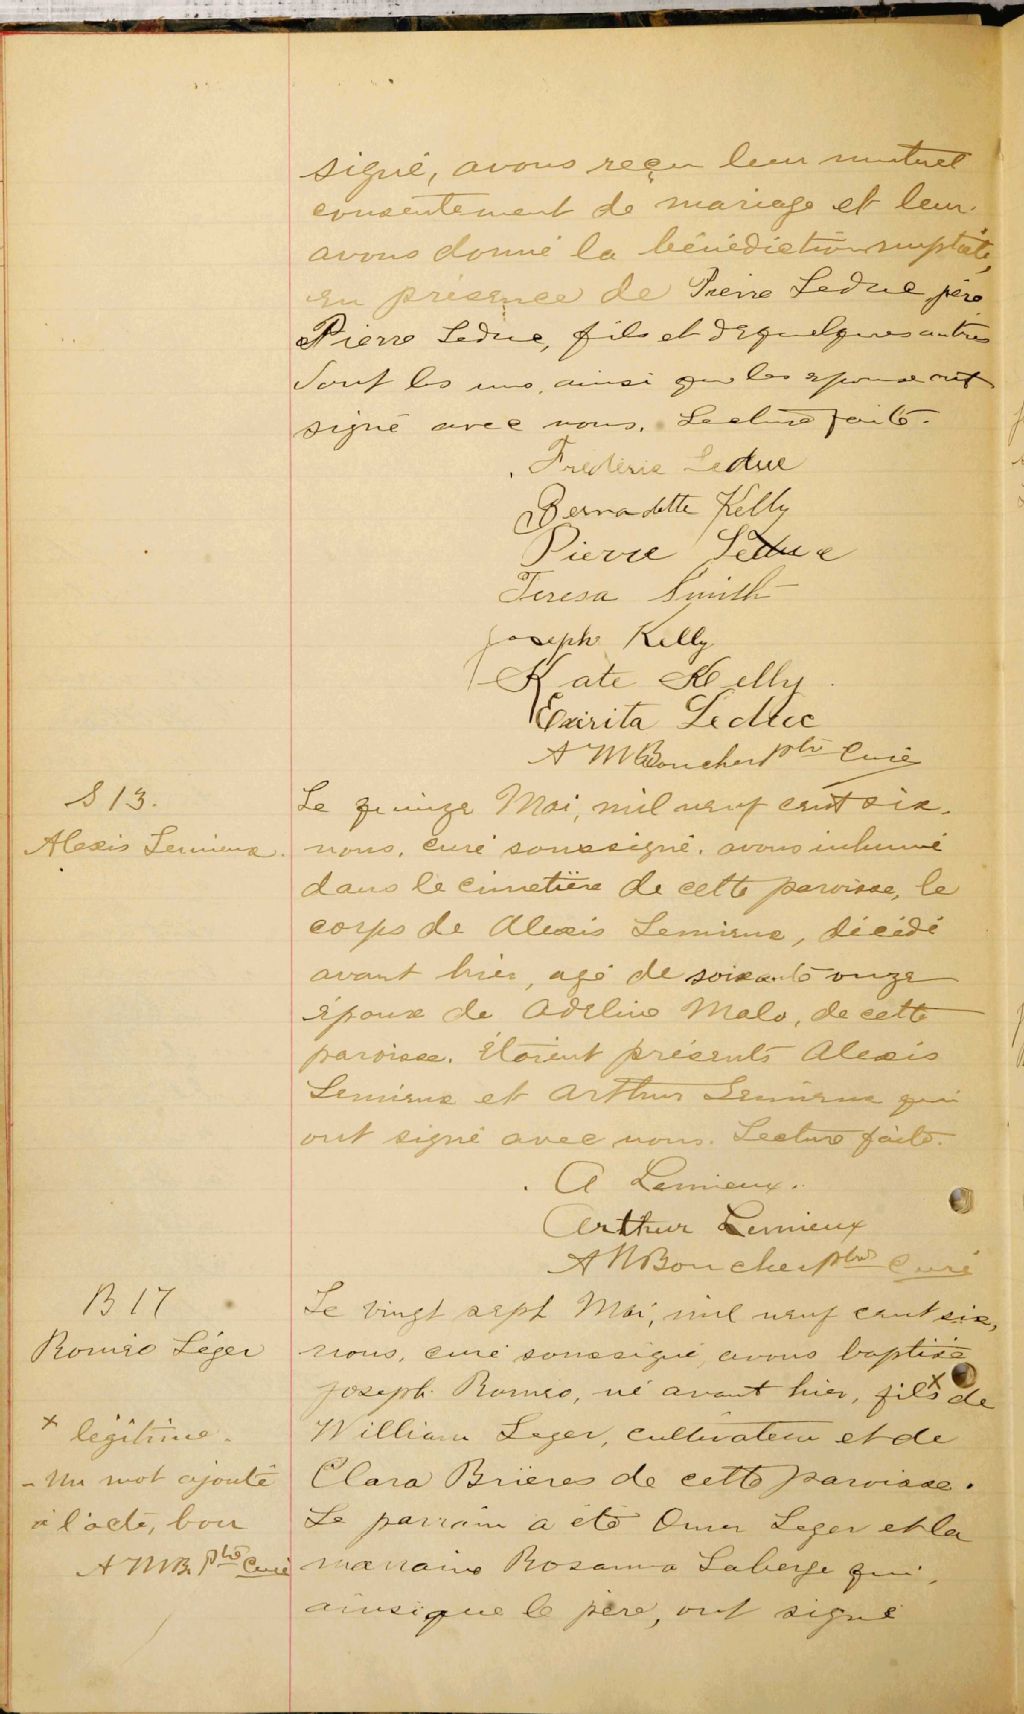 signé, avons reçu leur mutuel
consentement de mariage et leur
avons donné la bénédiction nuptiale,
en présence de Pierre Leduc, père
Pierre Leduc, fils et de quelques autres
dont les uns, ainsi que les époux ont
signé avec nous. Lecture faite.
Frédéric Leduc
Bernadette Kelly
Pierre Leduc
Teresa Smith
Joseph Kelly
Kate Kelly
Exirita Leduc
A M Boucher ptre Curé
S 13.
Alexis Lemieux.
Le quinze Mai, mil neuf cent six,
nous, curé soussigné, avons inhumé
dans le cimetière de cette paroisse, le
corps de Alexis Lemieux, décédé
avant hier, agé de soixante onze
époux de Adeline Malo, de cette
paroisse. Étaient présents Alexis
Lemieux et Arthur Lemieux qui
ont signé avec nous. Lecture faite.
A Lemieux.
Arthur Lemieux
A M Boucher ptre Curé
B 17
Roméo Léger
Le vingt sept Mai, mil neuf cent six,
nous, curé soussigné, avons baptisé
Joseph Romeo, né avant hier, fils x de
William Leger, cultivateur et de
Clara Brières de cette paroisse.
Le parrain a été Omer Leger et la
marraine Rosanna Laberge qui,
ainsi que le père, ont signé
x légitime.
- Un mot ajouté
à l'acte, bon
A M B. ptre Curé